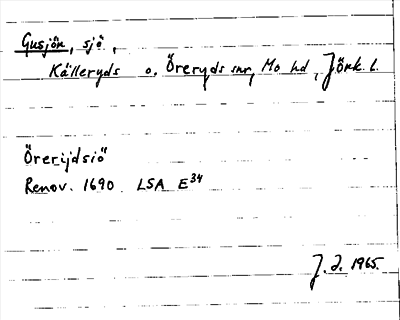 Gusjön, sjö,
Källeryds o. Öreryds snr, Mo hd, Jönk. l.
Örerijdsiö
Renov. 1690 LSA E34
J. J. 1965.